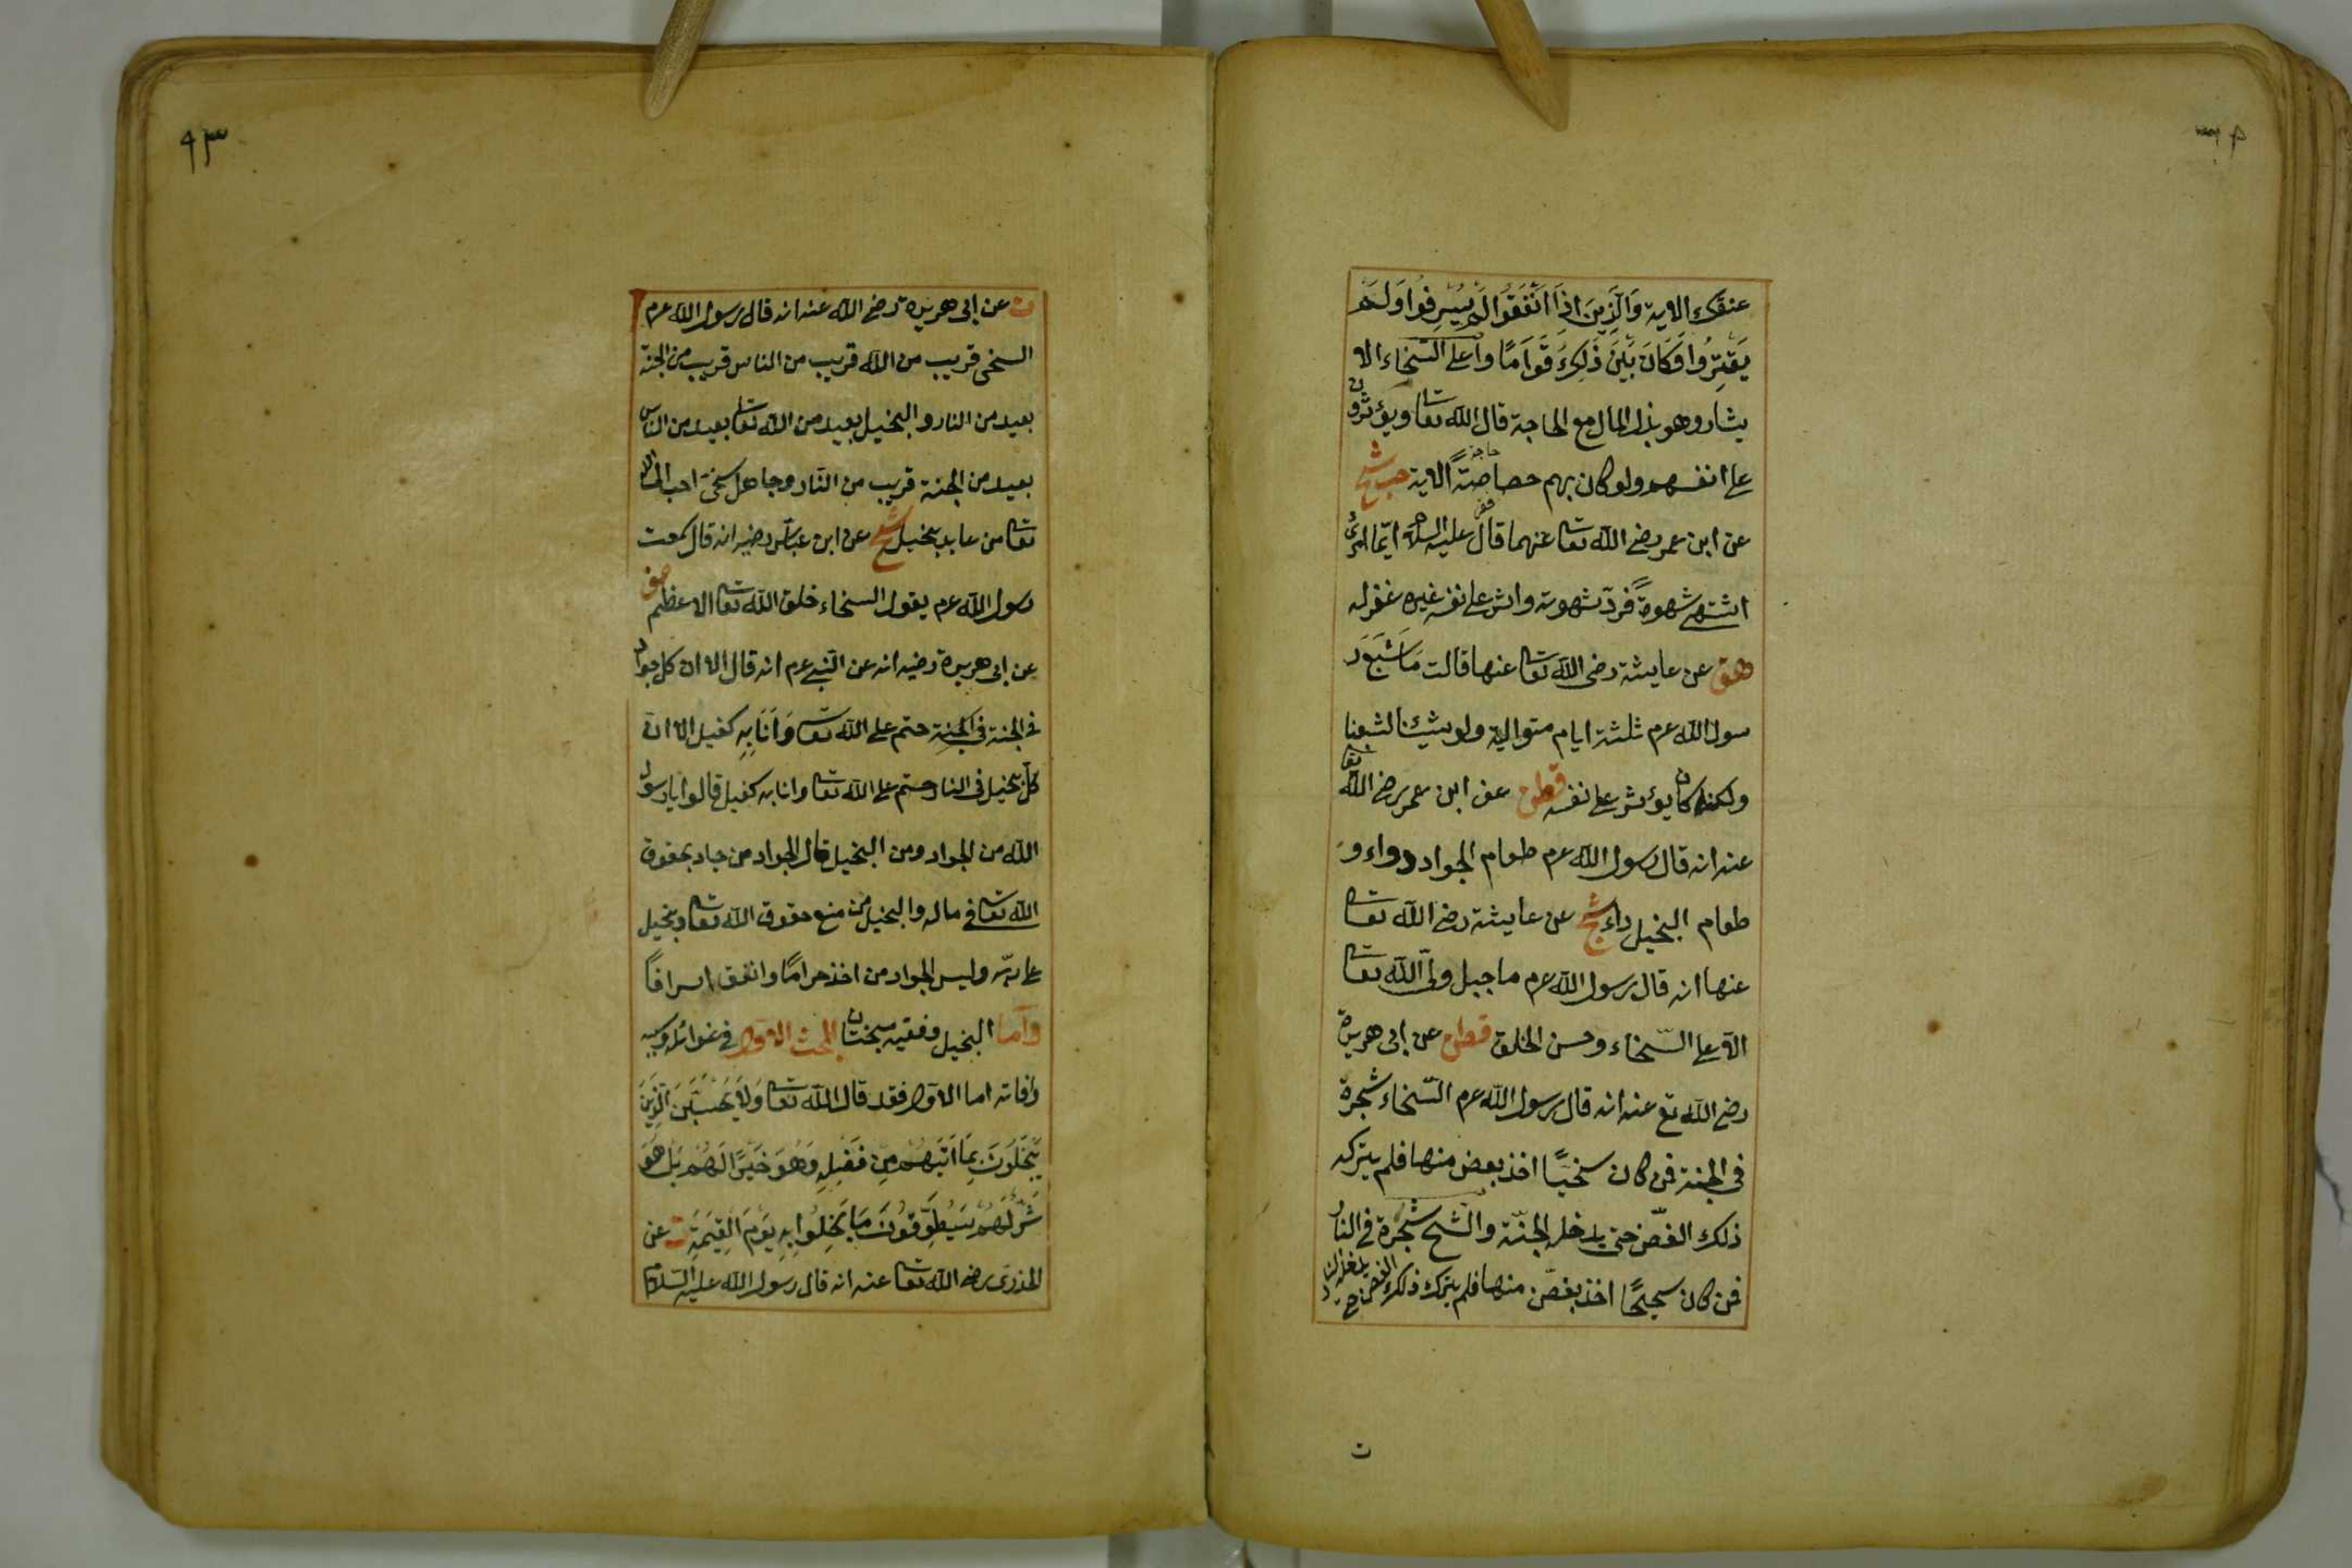 عنقك الاية وَالَّذِينَ اِذَا اَنْفَقُوا لَمْ يُسْرِفُوا وَلَمْ
يَقْتِرُوا وَكَانَ بَيْنَ ذَلِكَ قَوَامًا واعلى السّخاء الا
يثار وهو بذل المال مع الحاجة قال الله تعا ويؤثرون
على انفسهم ولو كان بهم خصاصةً الاية حب شيخ
حاجة
عن ابن عمر رضي الله تعا عنهما قال عليه السلام ايّما امرئ
اشتهى شهوة فردّ شهوته واثر على نفسه غفر له
هق عن عايشة رضى الله تعا عنها قالت مَا شَبِعَ ر
سول الله عم ثلثة ايام متوالية ولو شئنا لشبعنا
ولكنه كان يؤثر على نفسه قطن عن ابن عمر رضي الله تعا
عنه انه قال رسول الله عم طعام الجواد دواء و
طعام البخيل داء شيخ عن عايشة رضي الله تعا
عنها انه قال رسول الله عم ما جبل وليّ الله تعا
الا على السّخاء وحسن الخلق قطن عن ابى هريرة
رضي الله تع عنه انه قال رسول الله عم السّخاء شجرة
فى الجنة فمن كان سخيًّا اخذ بغصن منها فلم يتركه
ذلك الغصن حتى يدخله الجنّة والشح شجرة فى النار
فمن كان شحيحًا اخذ بغصن منها فلم يتركه ذلك الغصن ح يدخله النار
ت
٩٣
ت عن ابى هريرة رضي الله عنه انه قال رسول الله عم
السخى قريب من الله قريب من الناس قريب من الجنة
بعيد من النار والبخيل بعيد من الله تعا بعيد من الناس
بعيد من الجنة قريب من النّار وجاهل سخىّ احب الى الله
تعا من عابد بخيل شيخ عن ابن عباس رضيه انه قال سمعت
رسول الله عم يقول السخاء خلق الله تعا الاعظم صف
عن ابى هريرة رضيه انه عن النّبي عم انه قال الا ان كل جواد
فى الجنة فى الجنة حتم على الله تعا وَاَنَا بِهِ كفيل الا ان
كلّ بخيل فى النار حتم على الله تعا وانا به كفيل قالوا يا رسول
الله من الجواد ومن البخيل قال الجواد من جاد بحقوق
الله تعا فى ماله والبخيل من منع حقوق الله تعا وبخيل
على ربّه وليس الجواد من اخذ حرامًا وانفق اسرافًا
وامّا البخيل وفقيه مبحثان المبحث الاول فى غوائله وسببه
وآفاته اما الاول فقد قال الله تعا وَلَا يَحْسَبَنَّ الَّذِينَ
يَبْخَلُونَ بِمَا اَتَيهُمْ مِنْ فَضْلِهِ وَهُوَ خَيْرًا لَهُمْ بَلْ هُوَ
شَرٌّ لَهُمْ سَيُطَوَّقُونَ مَا بَخِلُوا بِهِ يَوْمَ الْقِيَمَةِ ت عن
الخذرى رضه الله تعا عنه انه قال رسول الله عليه السّلام